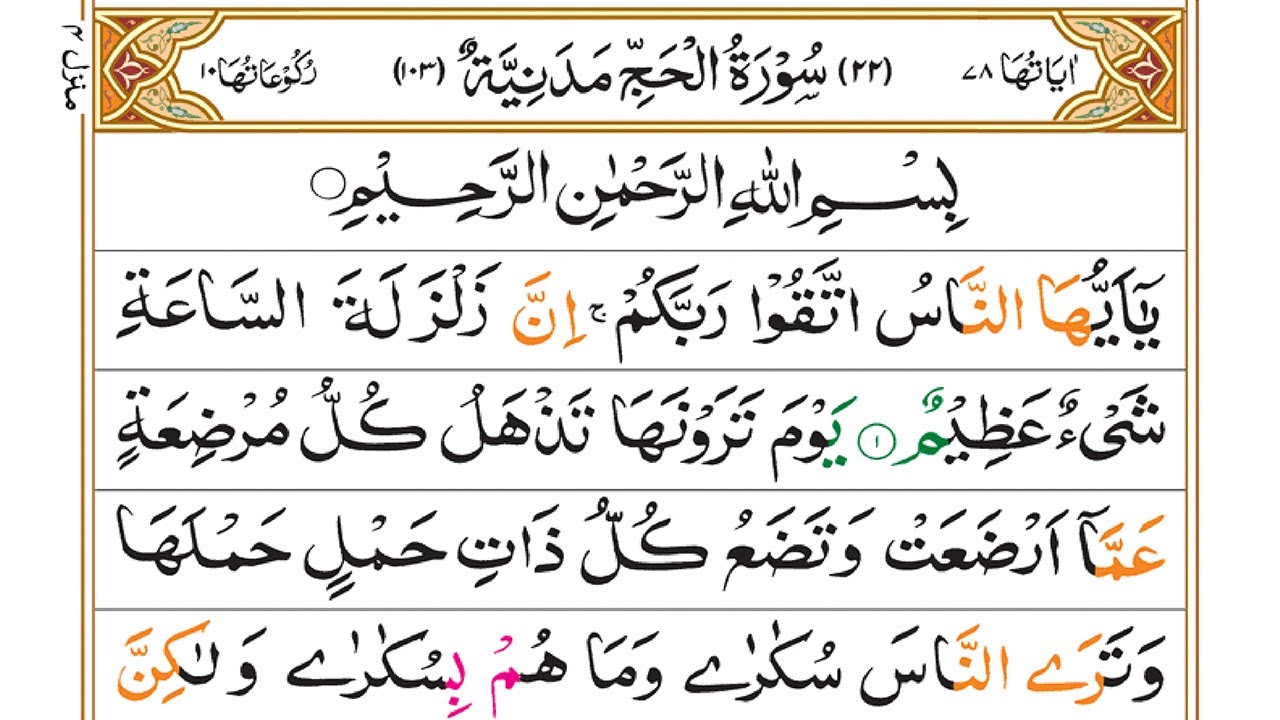 اٰيَاتُهَا ٧٨ (٢٢) سُوْرَةُ الْحَجِّ مَدَنِيَّةٌ (١٠٣) رُكُوْعَاتُهَا ١٠
منزل ٣
بِسْمِ اللّٰهِ الرَّحْمٰنِ الرَّحِيْمِ ○
يٰۤاَيُّهَا النَّاسُ اتَّقُوْا رَبَّكُمْ ۚ اِنَّ زَلْزَلَةَ السَّاعَةِ
شَیْءٌ عَظِيْمٌ ﴿١﴾ يَوْمَ تَرَوْنَهَا تَذْهَلُ كُلُّ مُرْضِعَةٍ
عَمَّاۤ اَرْضَعَتْ وَتَضَعُ كُلُّ ذَاتِ حَمْلٍ حَمْلَهَا
وَتَرَے النَّاسَ سُكٰرٰے وَمَا هُمْ بِسُكٰرٰے وَلٰكِنَّ